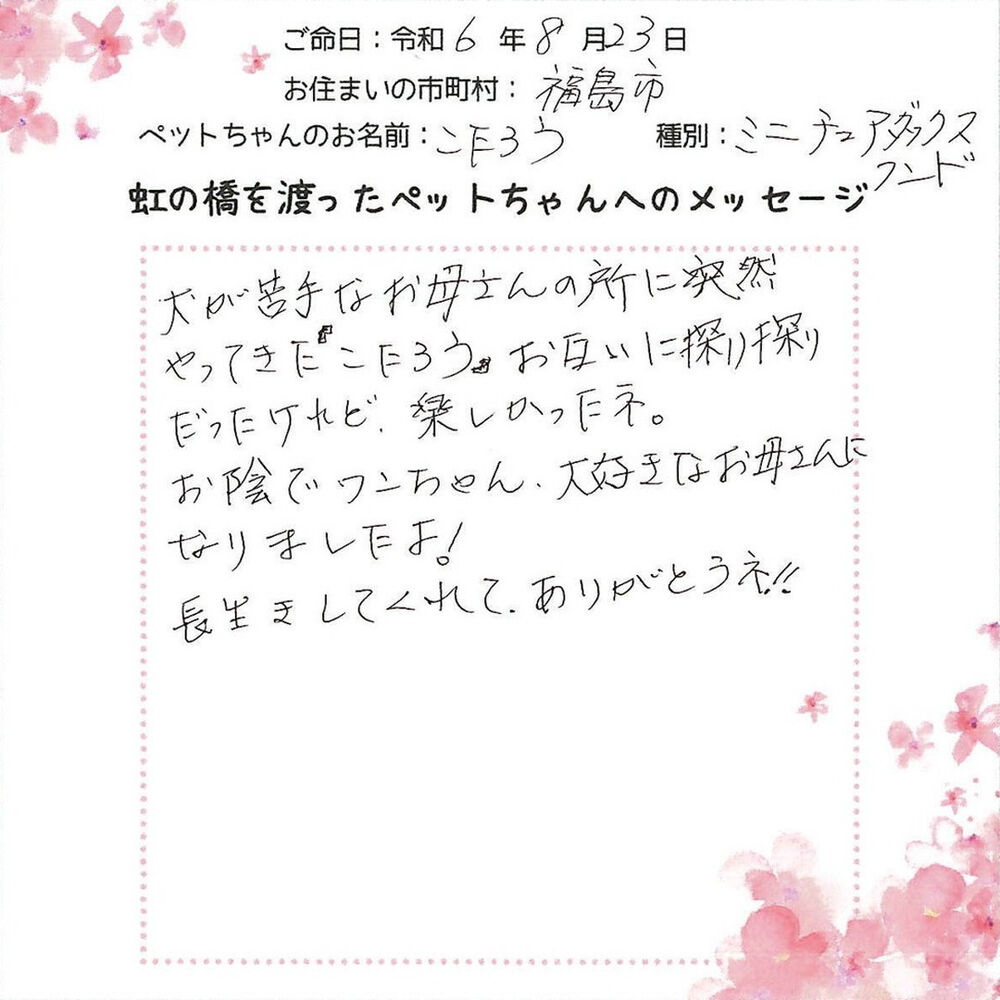 ご命日：令和 6 年 8 月 23 日
お住まいの市町村： 福島市
ペットちゃんのお名前：こたろう 種別：ミニチュアダックス
フンド
虹の橋を渡ったペットちゃんへのメッセージ
犬が苦手なお母さんの所に突然
やってきた〝こたろう〟お互いに探り探り
だったけれど、楽しかったネ。
お陰でワンちゃん、大好きなお母さんに
なりましたよ!
長生きしてくれて、ありがとうネ!!